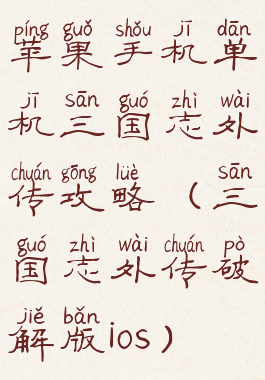 píng guǒ shǒu jī dān
苹果手机单
jī sān guó zhì wài
机三国志外
chuán gōng lüè sān
传攻略（三
guó zhì wài chuán pò
国志外传破
jiě bǎn
解版ios）